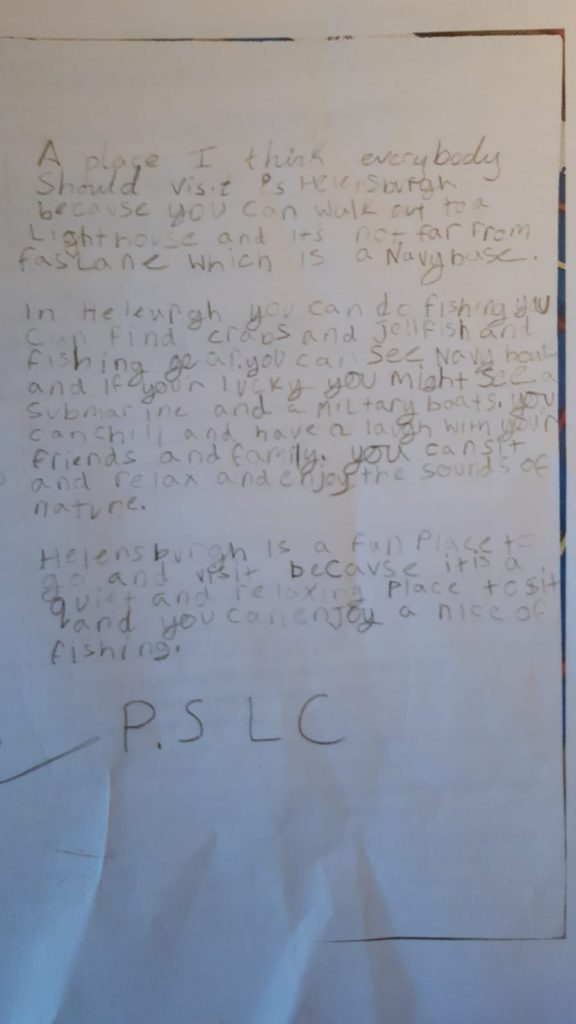 A place I think everybody
Should visit is Helensburgh
because you can walk out to a
Lighthouse and it's not far from
faslane which is a Navy base.
In Heleurgh you can do fishing you
can find crabs and jellfish and
fishing gear. you can see Navy boats
and if your lucky you might see a
Submarine and a miltary boats. you
can chill and have a laugh with your
friends and family. you can sit
and relax and enjoy the sounds of
nature.
Helensburgh is a fun place to
go and visit because it is a
quiet and relaxing place to sit
and you can enjoy a nice of
fishing.
P.S L C